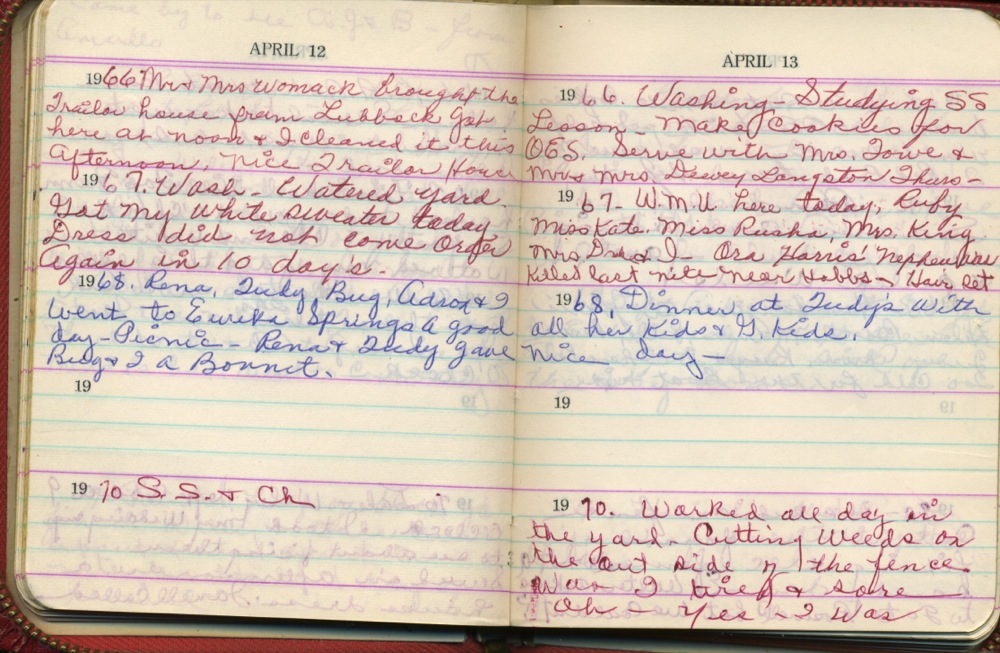 Came by to see A.J. & B - from
Amarillo
APRIL 12
1966 Mr & Mrs Womack brought the
Trailor house from Lubbock got
here at noon & I cleaned it this
afternoon. Nice Trailor House
1967. Wash - Watered yard.
Got my white sweater today.
Dress did not come order
again in 10 day's.
1968. Rena, Judy, Bug, Adron & I
went to Eureka Springs a good
day - Picnic - Rena & Judy gave
Bug & I a Bonnet.
19
1970 S.S. & Ch
APRIL 13
1966. Washing - Studying SS
Lesson - Make Cookies for
O.E.S. Serve with Mrs. Towe &
Mr & Mrs Dewey Langston Thurs -
1967 - W.M.U here today, Ruby
Miss Kate, Miss Rusha, Mrs. King
Mrs & I - Ora Harris' Nephew was
Killed last nite near Hobbs - Hair set
1968, Dinner at Judy's with
all her Kids & G. Kids.
Nice day -
19
1970. Worked all day in
the yard. Cutting weeds on
the out side of the fence.
Was I tired & sore
Oh Yes I Was